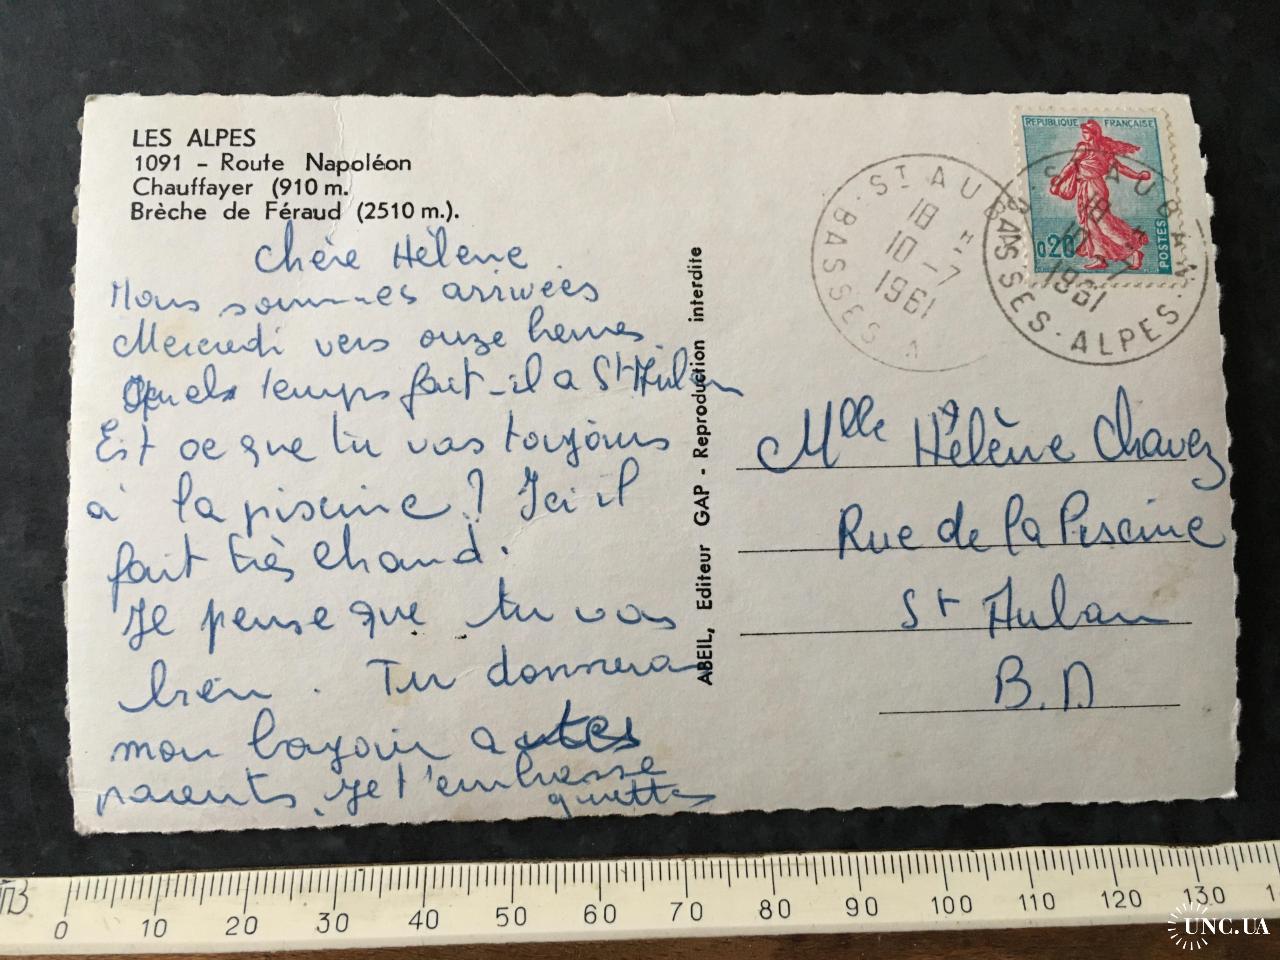 LES ALPES
1091 - Route Napoléon
Chauffayer (910 m.
Brèche de Féraud (2510 m.).
Chère Hélène
Nous sommes arrivées
Mercredi vers onze heures
quels temps fait-il a St Auban
Est ce que tu vas toujours
à la piscine ? Ici il
fait très chaud.
Je pense que tu vas
bien. Tu donnera
mon bonjour a tes
parents. Je t'embrasse
ABEIL, Editeur GAP - Reproduction interdite
REPUBLIQUE FRANÇAISE
0,20
POSTES
ST AUBAN
18 H
10-7
1961
BASSES A
ST AUBAN
18 H
10-7
1961
BASSES-ALPES
Mlle Hélène Chavez
Rue de la Piscine
St Auban
B. A
0 10 20 30 40 50 60 70 80 90 100 110 120 130
UNC.UA